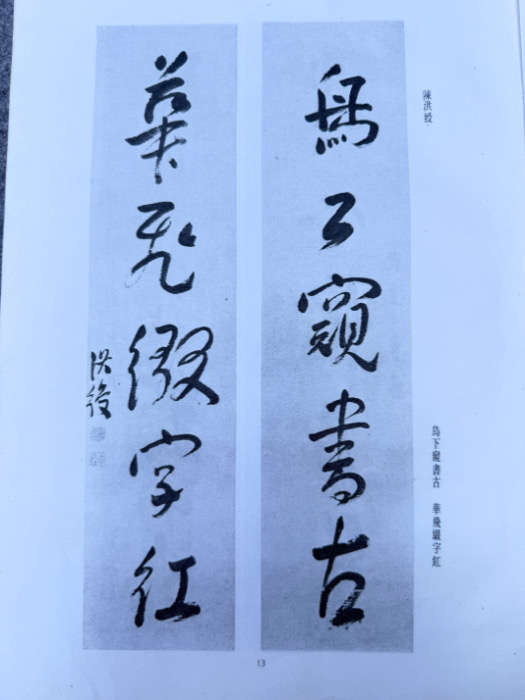 陳洪綬
鳥下窺書古
華飛綴字紅
洪綬
鳥下窺書古 華飛綴字紅
13